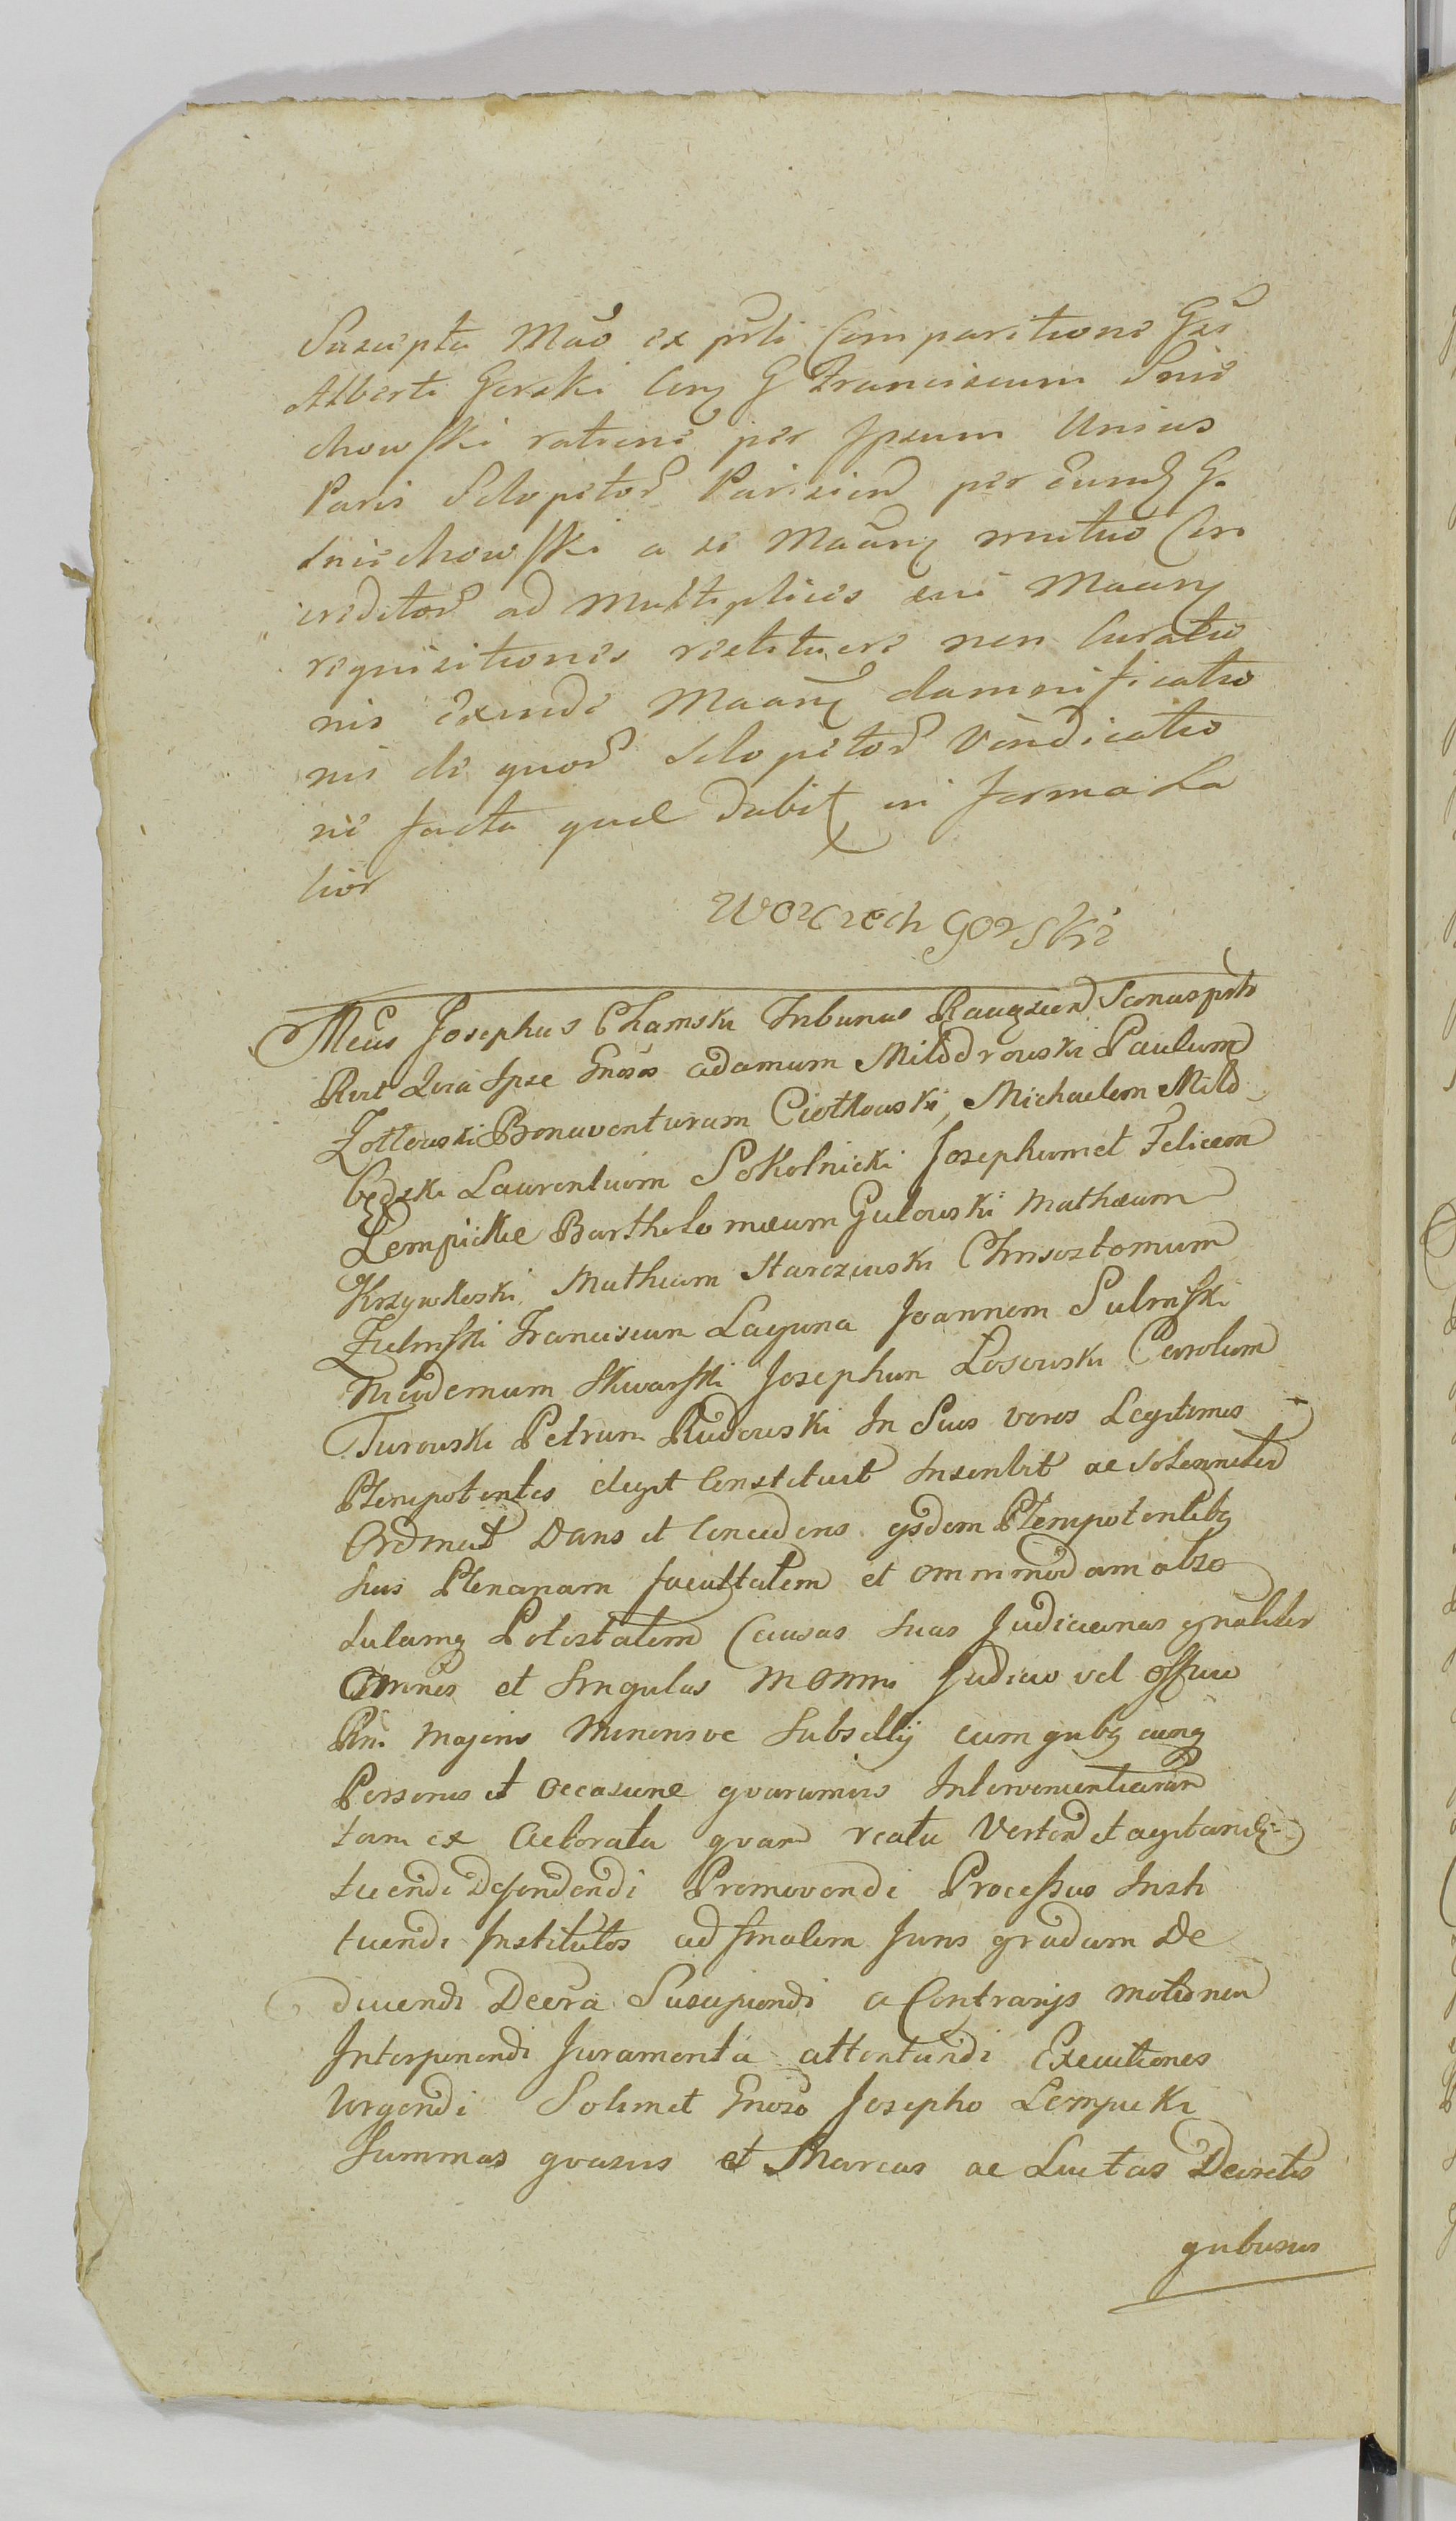 Suscepta Mão ex prti Comparitione Gsi
Alberti Gorski Conq G Franciscum Snie
chowski ratione per Ipsum Unius
Paris Sclopetor Parisien per Eundq G.
Sniechowski a se Maanq mutuo Con
creditor ad Multiplices sui Maanq
requisitiones restituere non Curatio
nis Exinde Maanq damnificatio
nis de quor Sclopetor Vindicatio
ne facta quae dabit in forma La
tior
Woiciech Gorski
Mcus Josephus Chamski Tribunus Raciązien Sanus prts
Rert Lera Ipse Gnosos adamum Milodrowski Paulum
Zottowski Bonaventuram Ciotkowski, Michaelem Mild
Laurentium Sokolnicki Josephum et Felicem
Lempickie Bartholomæum Gulowski Mathæum
Krzywkoski Mathium Starczewski Chrisoztomum
Zulinski Franciscum Laguna Joannem Sulinski
Nicodemum Skwarski Josephum Losowski Carolum
Turowski Petrum Rudowski In Suos veros Legitimos
Plenipotentes elegit Constituit Inscribit ac Solenniter
Ordinat Dans et Concedens ysdem Plenipotentibq
suis Plenariam facultatem et Omnimodam abso
lutamq Potestatem Causas suas Judiciarias gnaliter
Omnes et Singulas in omni Judicio vel officio
Rni Majoris Minorisve Subsellij cum qubq cunq
Personis et Occasione quarumvis Intervenientiarum
tam ex Actoratu quam reatu Verten et agitandi
tuendi Defendendi Promovendi Processus Insti
tuendi Institutos ad finalem Juris gradum De
ducendi Decra Suscipiendi a Contrarijs motionem
Interponendi Juramenta attentandi Executiones
Urgendi Solimet Gnoso Josepho Lempicki
Summas quasvis et Marcas ac Luctas Decretis
qubusvis